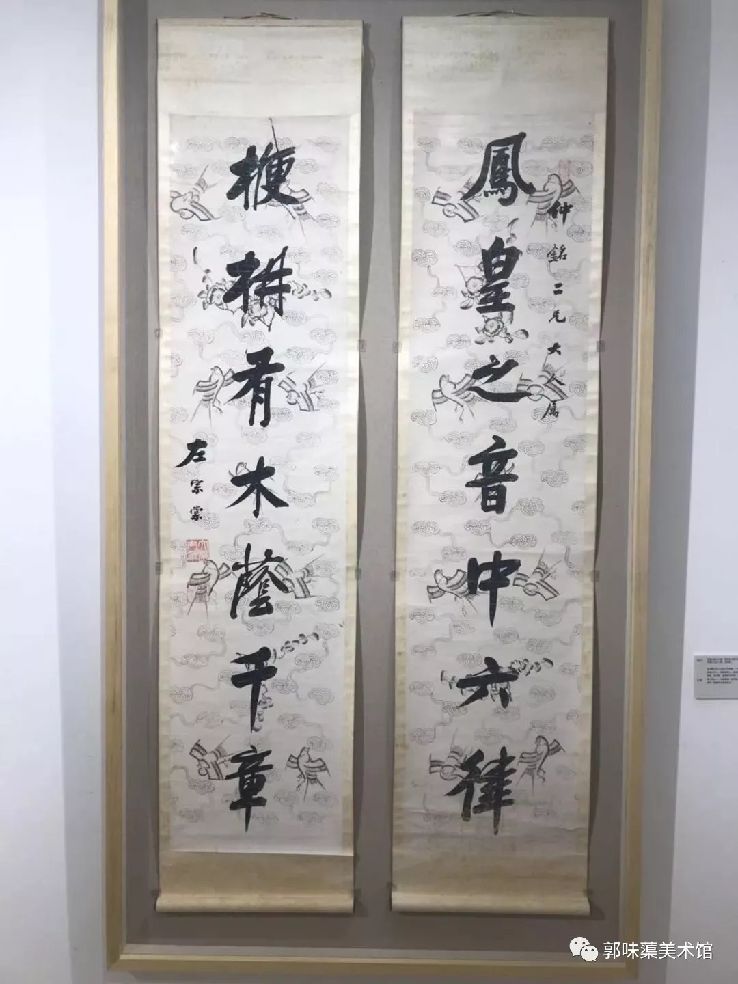 鳳皇之音中六律
仲銘二兄大人屬
楩枏有木蔭千章
左宗棠
郭味蕖美术馆